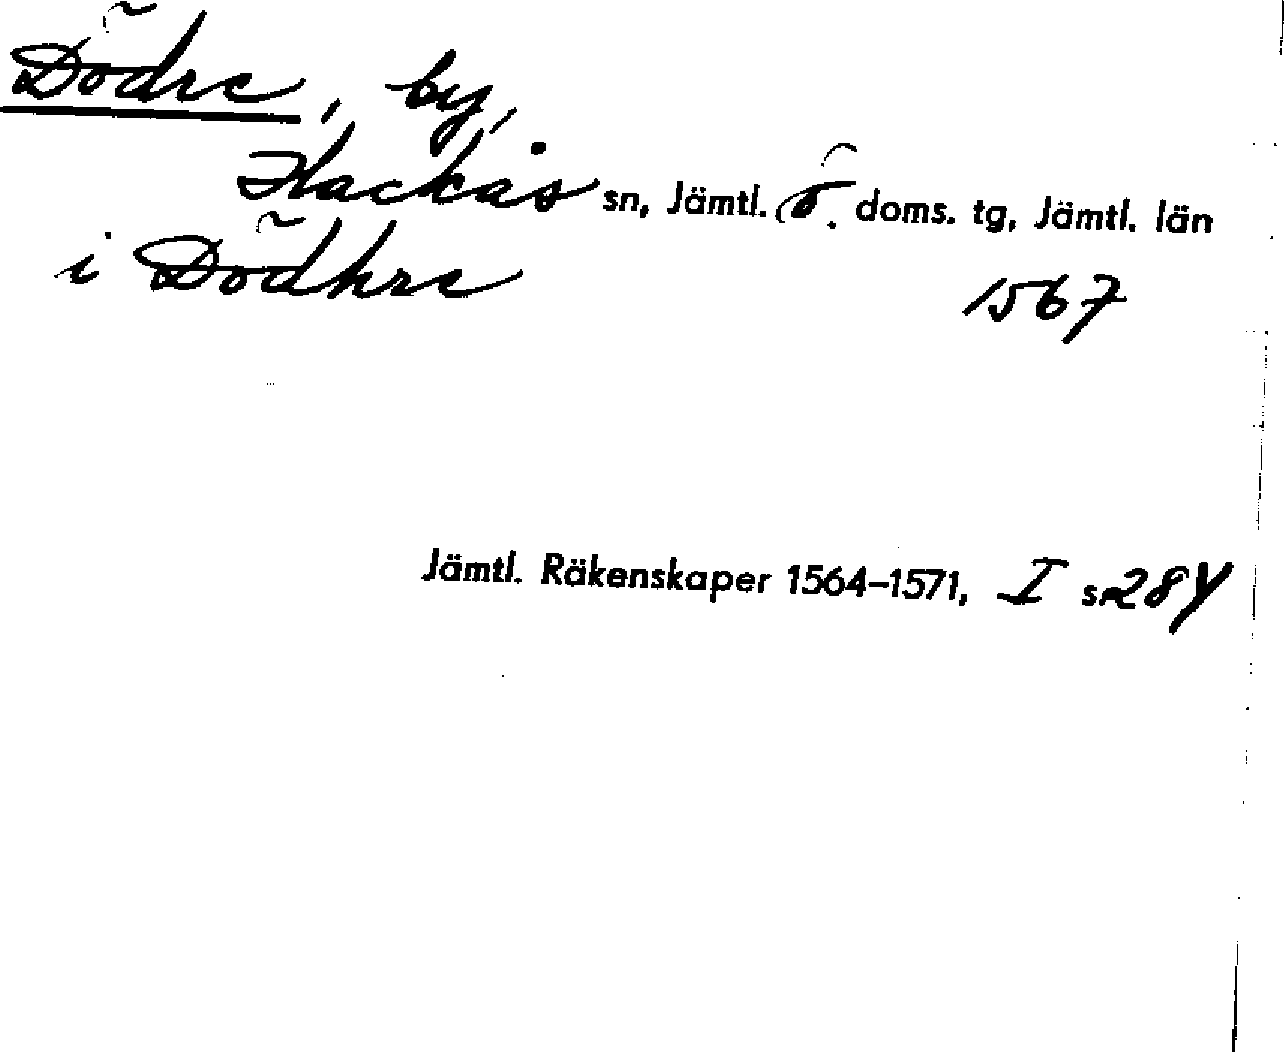 Dödre, by,
Hackås sn, Jämtl. ö. doms. tg, Jämtl. län
i Dödhre 1567
Jämtl. Räkenskaper 1564–1571, I s. 284